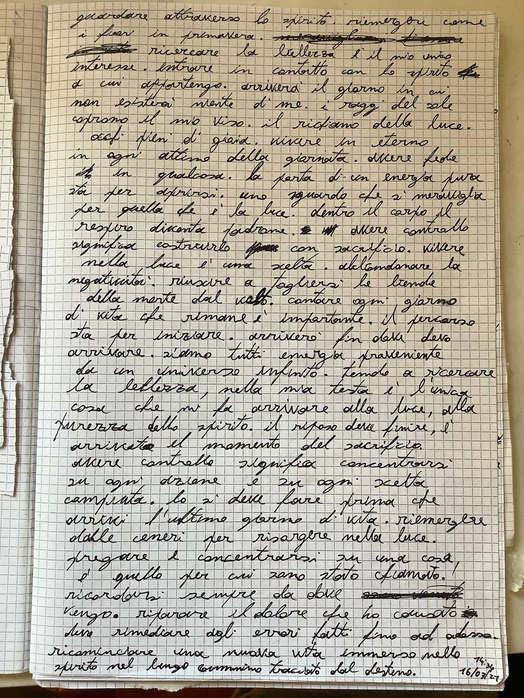 guardare attraverso lo spirito. riemergere come
i fiori in primavera.
ricercare la bellezza è il mio unico
interesse. entrare in contatto con lo spirito
a cui appartengo. arriverà il giorno in cui
non esisterà niente di me. i raggi del sole
coprono il mio viso. il richiamo della luce.
occhi pieni di gioia. vivere in eterno
in ogni attimo della giornata. avere fede
in qualcosa. la porta di un energia pura
sta per aprirsi. uno sguardo che si meraviglia
per quella che è la luce. dentro il corpo il
respiro diventa padrone. avere controllo
significa costruirlo con sacrificio. vivere
nella luce è una scelta. abbandonare la
negatività. riuscire a togliersi le bende
della morte dal volto. contare ogni giorno
di vita che rimane è importante. il percorso
sta per iniziare. arriverò fin dove devo
arrivare. siamo tutti energia proveniente
da un universo infinito. tendo a ricercare
la bellezza, nella mia testa è l'unica
cosa che mi fa arrivare alla luce, alla
purezza dello spirito. il riposo deve finire, è
arrivato il momento del sacrificio.
avere controllo significa concentrarsi
su ogni azione e su ogni scelta
compiuta. lo si deve fare prima che
arrivi l'ultimo giorno di vita. riemergere
dalle ceneri per risorgere nella luce.
pregare e concentrarsi su una cosa,
è quello per cui sono stato chiamato.
ricordarsi sempre da dove
vengo. riparare il dolore che ho causato
devo rimediare agli errori fatti fino ad adesso.
ricominciare una nuova vita immerso nello
spirito nel lungo cammino tracciato dal destino.
16/03/21